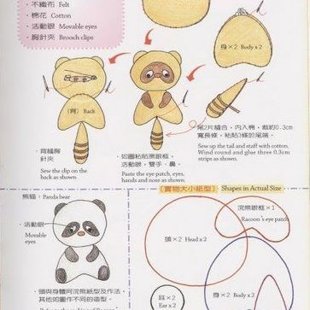 ・不織布 Felt
・棉花 Cotton
・活動眼 Movable eyes
・胸針夾 Brooch clips
身×2 Body x 2
(背) Back
・背縫胸
針夾
Sew the clip on the
back as shown.
・如圖粘貼黑眼框,
活動眼,雙手、鼻。
Paste the eye patch, eyes,
hands and nose as shown.
・尾2片縫合,內入棉,裁約0.3cm
寬長條,粘貼3條於尾端。
Sew up the tail and staff with cotton.
Wind round and glue three 0.3cm
strips as shown.
(實物大小紙型) Shapes in Actual Size
熊貓:Panda bear
・活動眼
Movable
eyes
・頭與身體同浣熊紙型及作法,
其他如圖作不同的造型。
浣熊眼框×1
Racoon's eye patch
頭×2 Head x 2
耳×2
Ear x 2
身×2 Body x 2